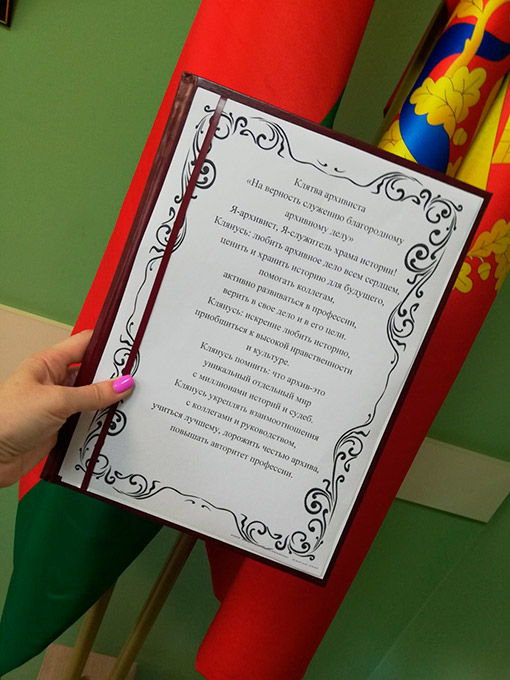 Клятва архивиста
«На верность служению благородному
архивному делу»
Я-архивист, Я-служитель храма истории!
Клянусь: любить архивное дело всем сердцем,
ценить и хранить историю для будущего,
помогать коллегам,
активно развиваться в профессии,
верить в свое дело и в его цели.
Клянусь: искренне любить историю,
приобщиться к высокой нравственности
и культуре.
Клянусь помнить: что архив-это
уникальный отдельный мир
с миллионами историй и судеб.
Клянусь укреплять взаимоотношения
с коллегами и руководством,
учиться лучшему, дорожить честью архива,
повышать авторитет профессии.